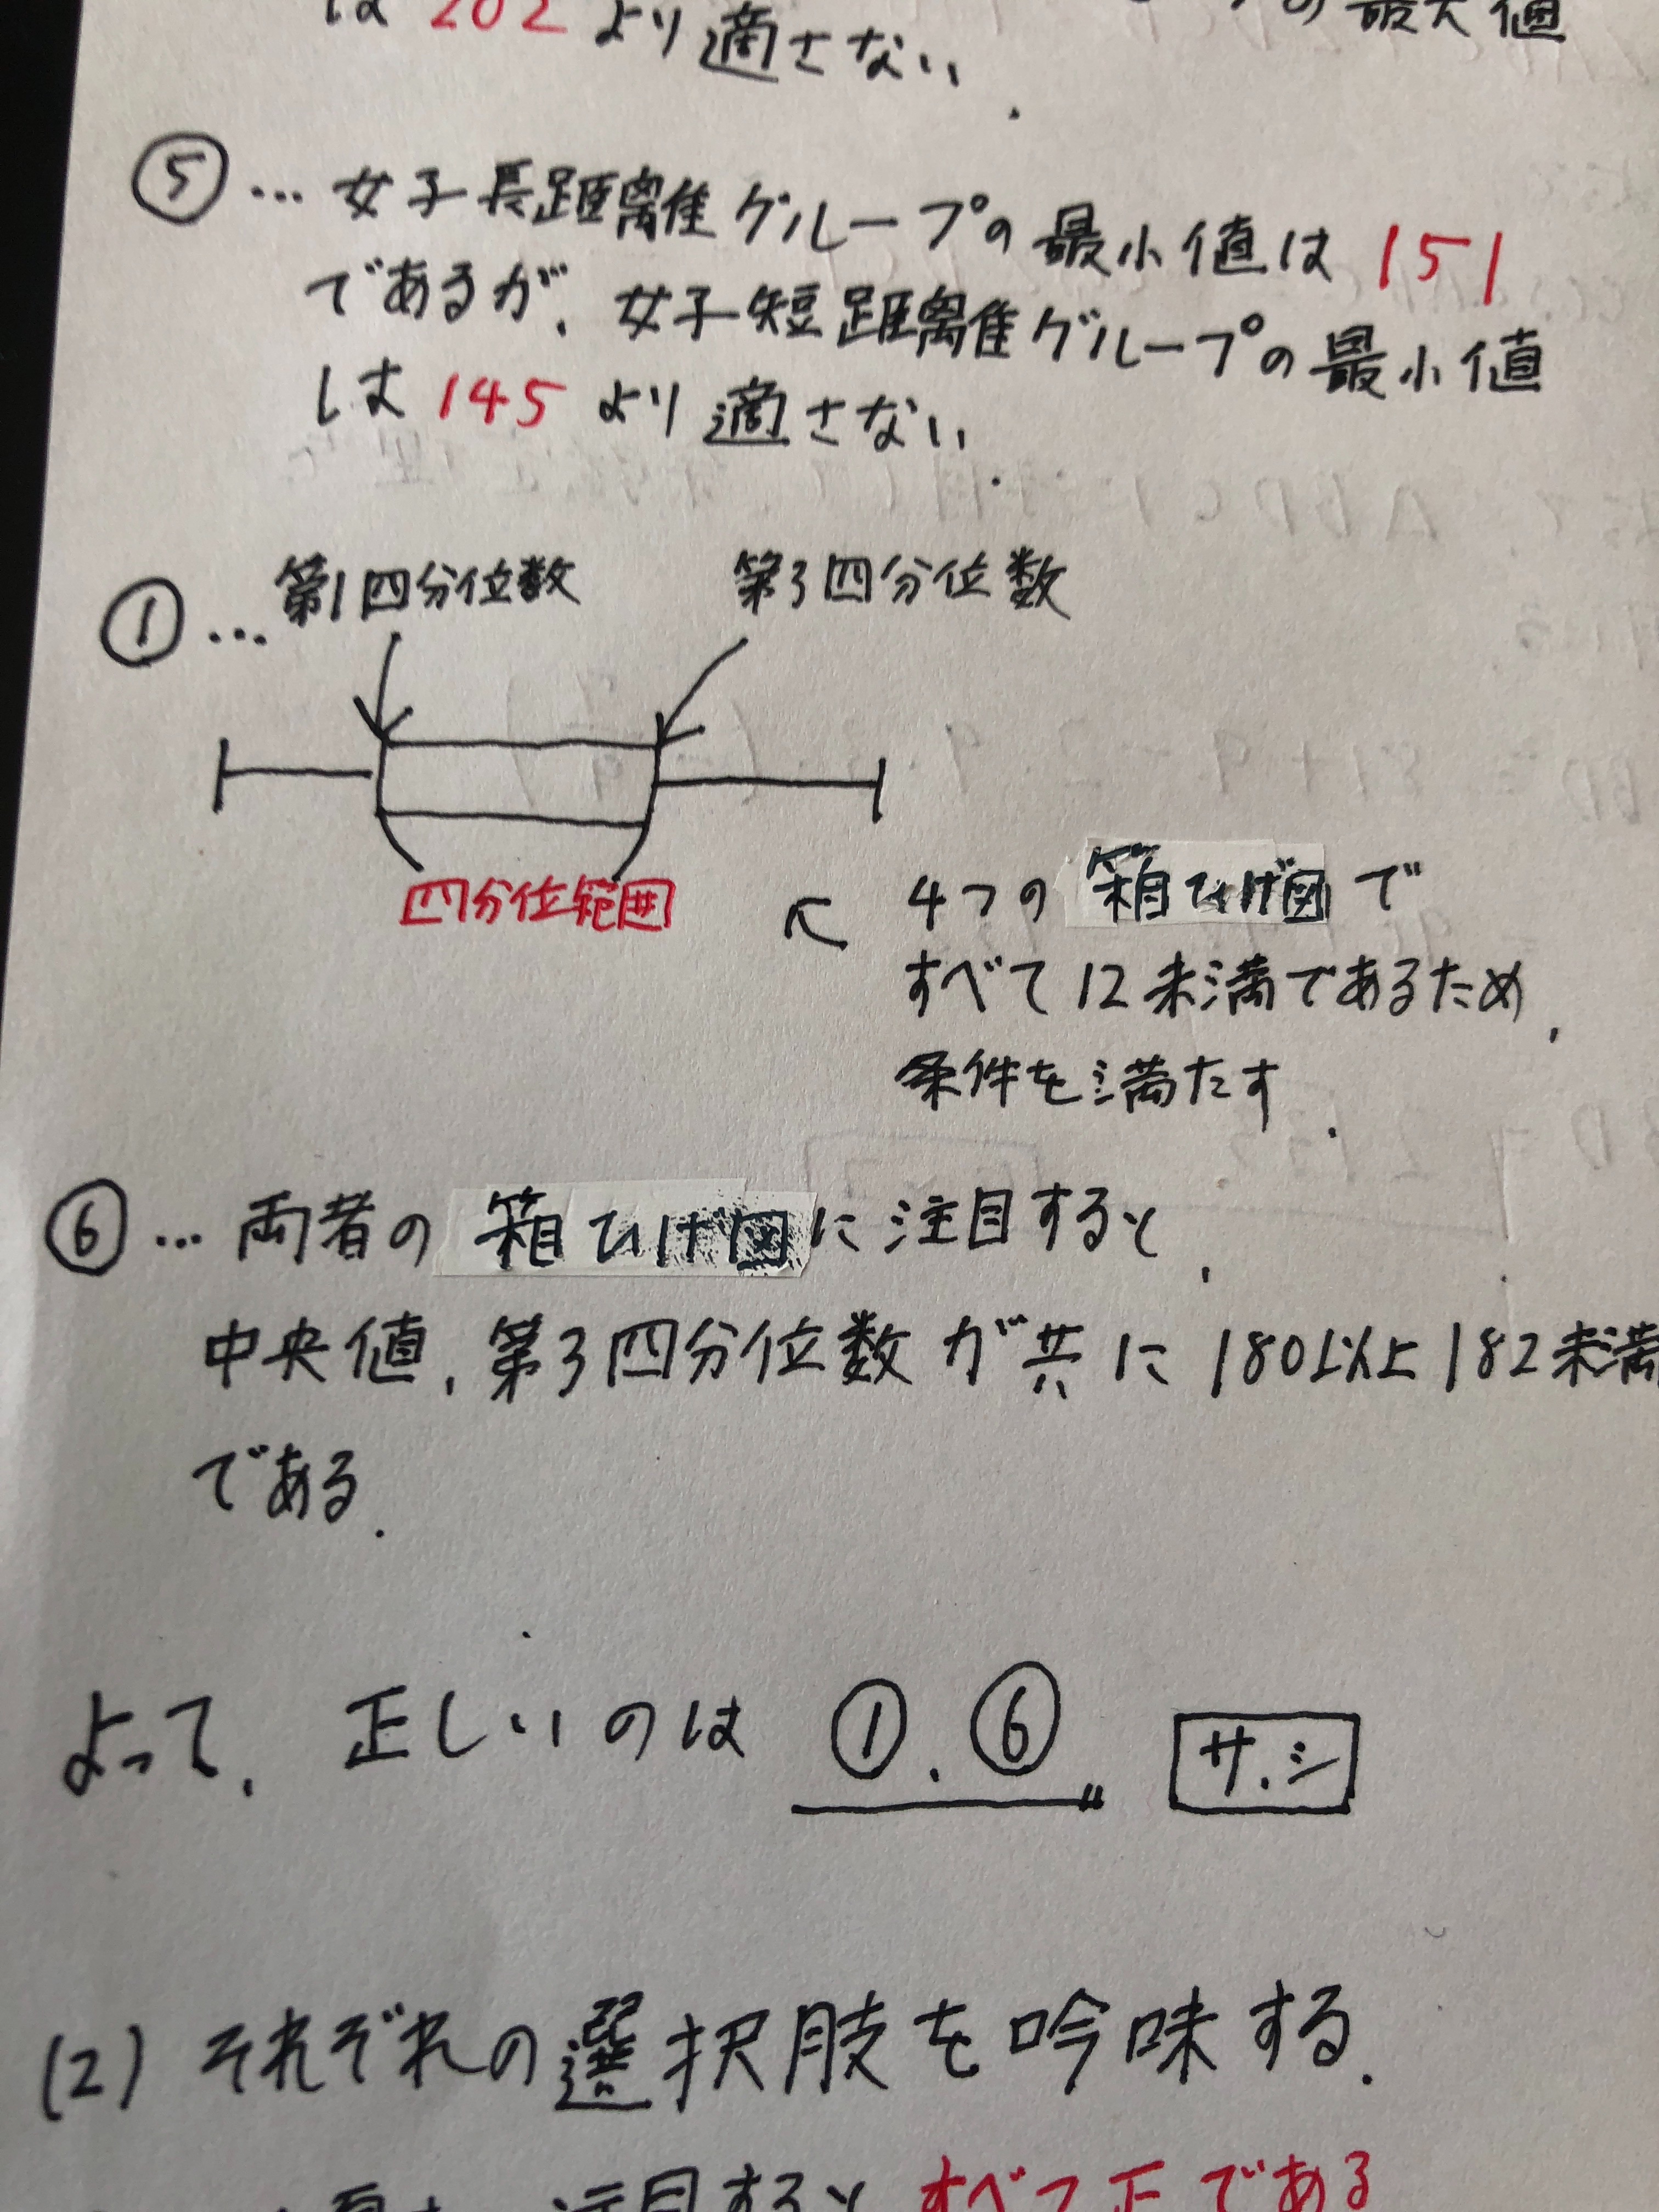 は 202 より適さない.
の最大値
⑤ … 女子長距離グループの最小値は 151
であるが、女子短距離グループの最小値
は 145 より適さない.
① … 第1四分位数 第3四分位数
四分位範囲
↖ 4つの箱ひげ図で
すべて12未満であるため,
条件を満たす.
⑥ … 両者の箱ひげ図に注目すると,
中央値, 第3四分位数が共に180以上182未満
である.
よって, 正しいのは ①, ⑥〃 サ, シ
(2) それぞれの選択肢を吟味する.
すべて正である